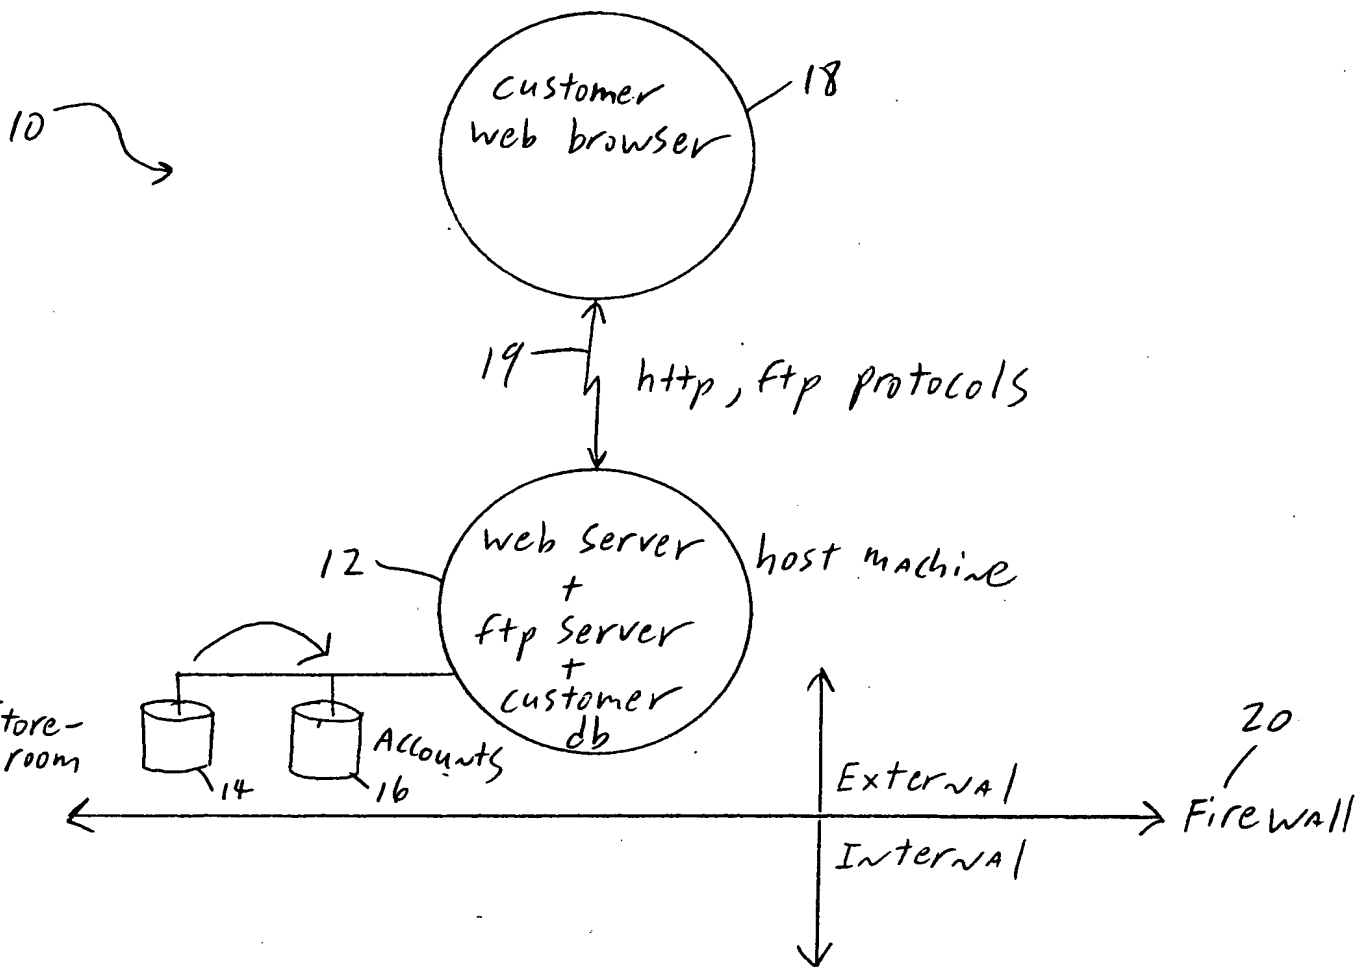 10
customer
web browser
18
19
http, ftp protocols
12
web server
+
ftp server
+
customer
db
host machine
tore-
room
14
Accounts
16
External
Internal
20
Firewall